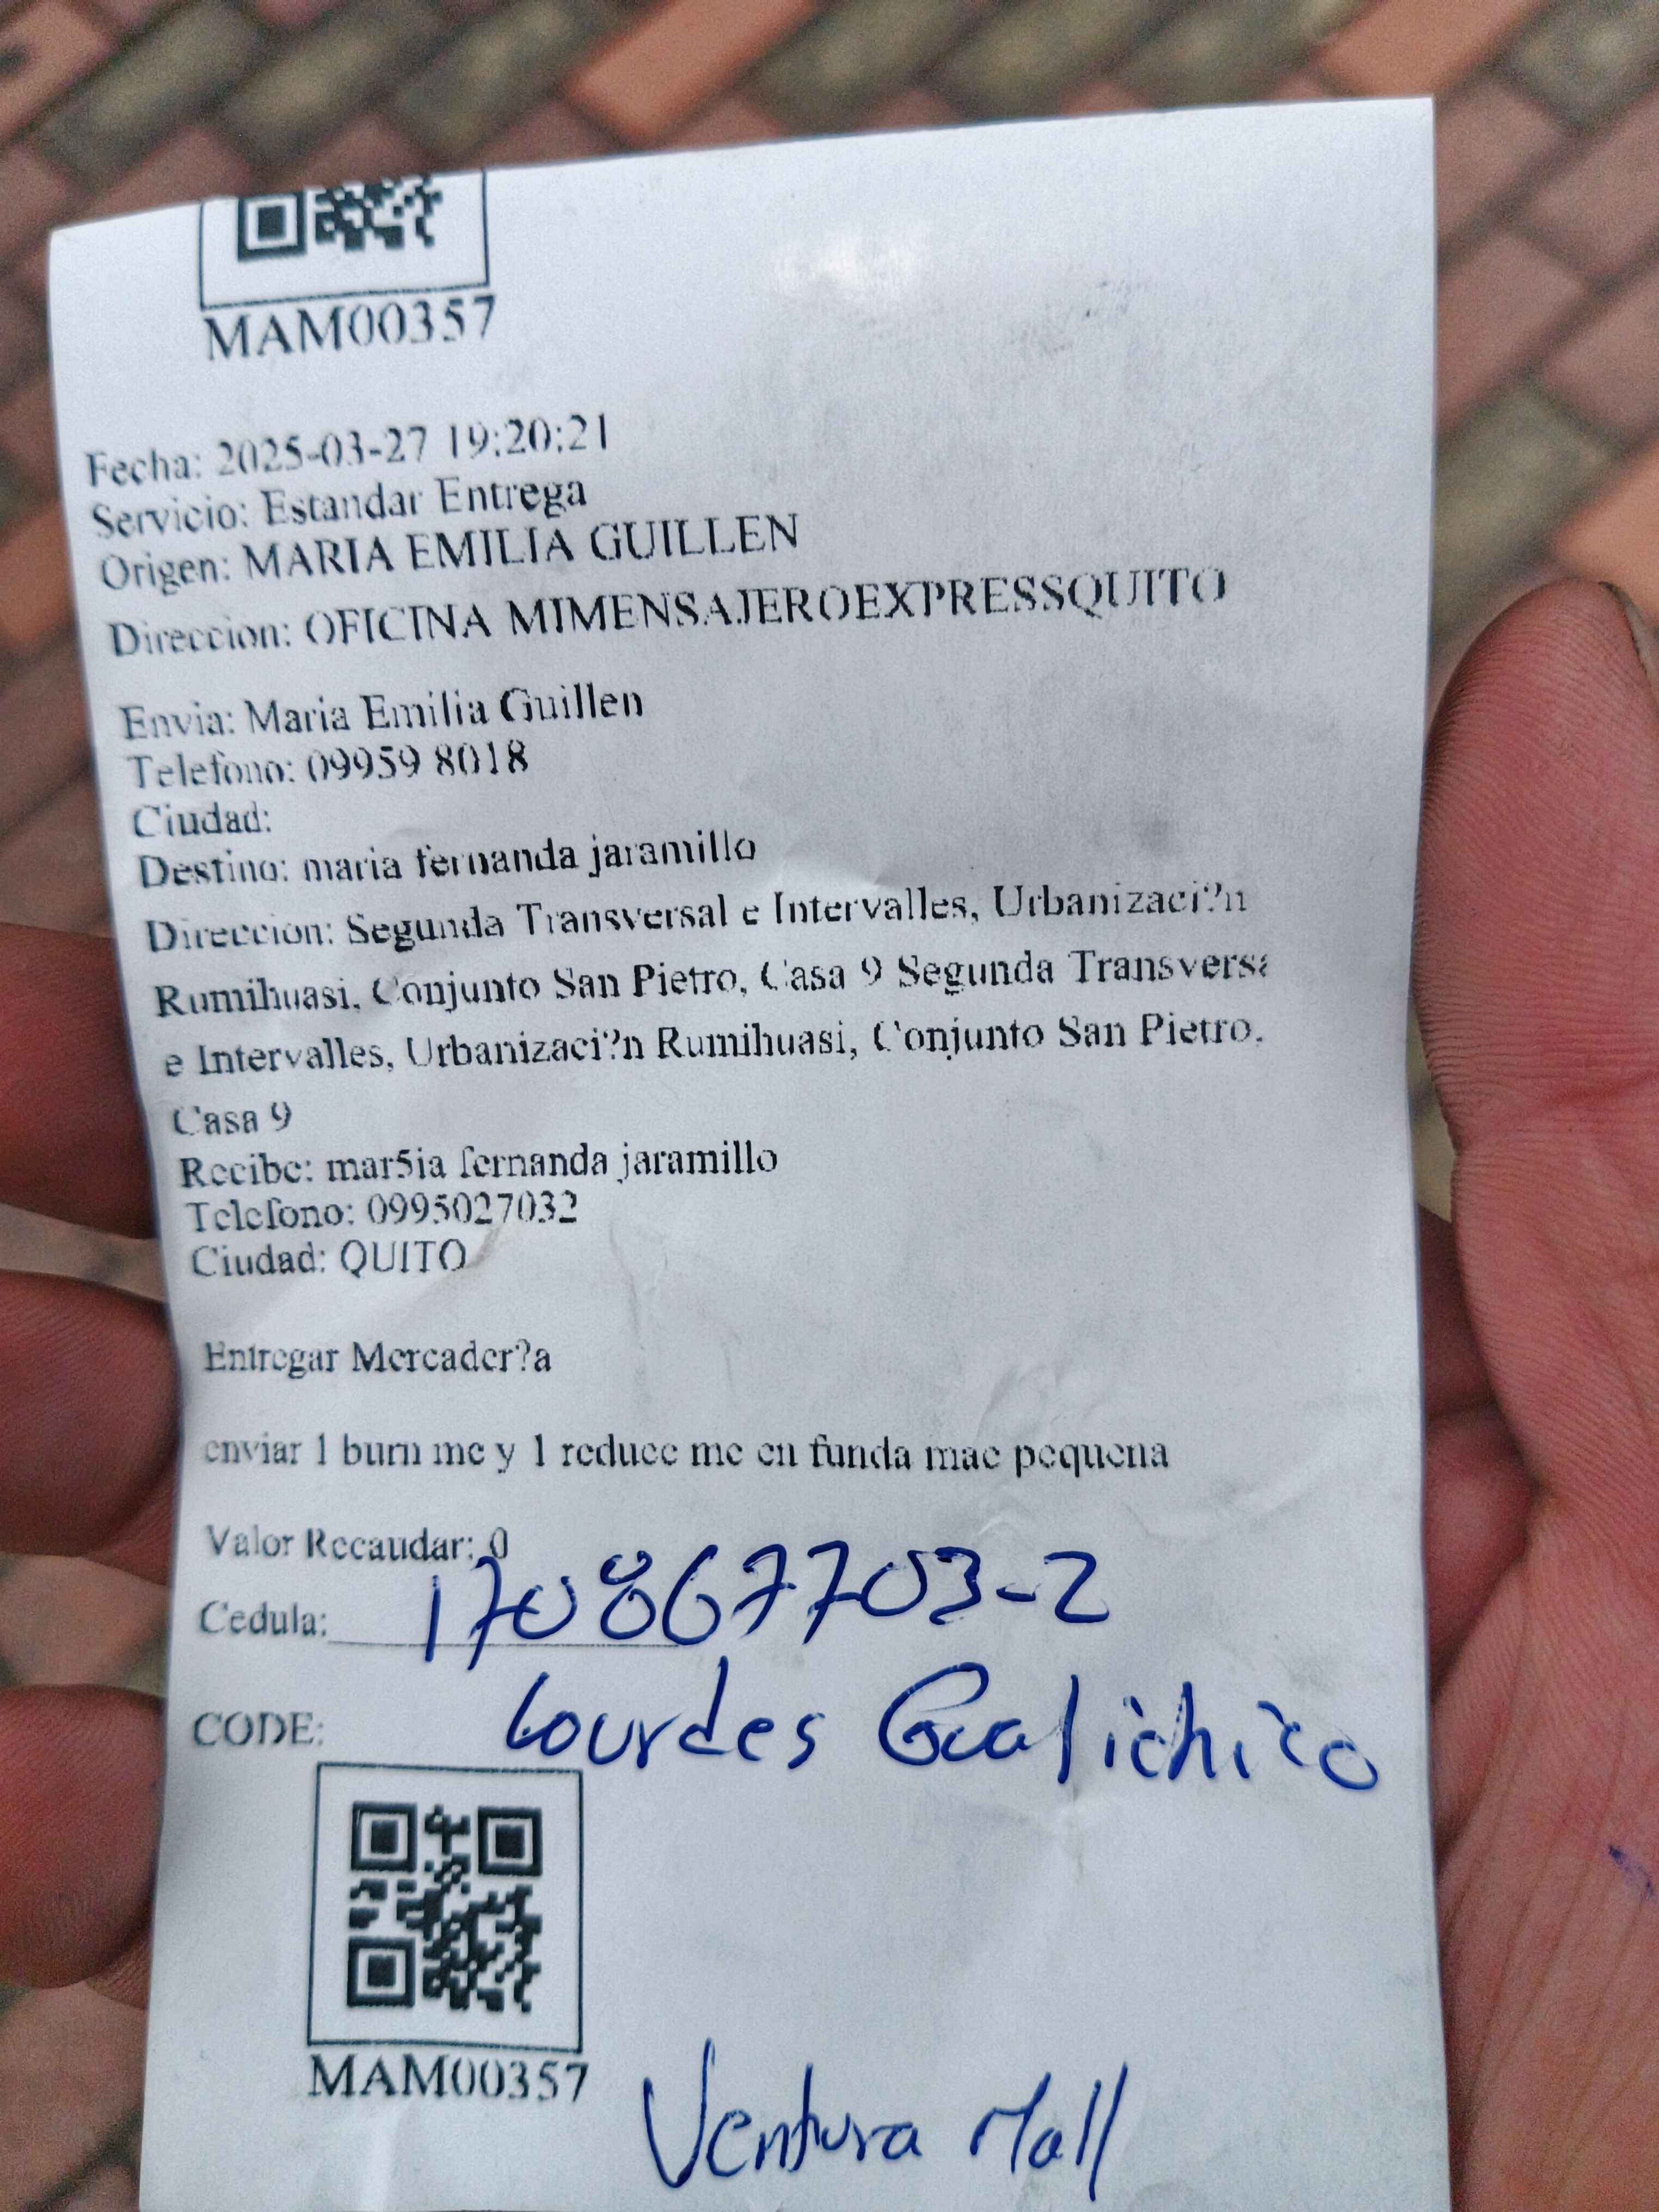 MAM00357
Fecha: 2025-03-27 19:20:21
Servicio: Estandar Entrega
Origen: MARIA EMILIA GUILLEN
Direccion: OFICINA MIMENSAJEROEXPRESSQUITO
Envia: Maria Emilia Guillen
Telefono: 09959 8018
Ciudad:
Destino: maria fernanda jaramillo
Direccion: Segunda Transversal e Intervalles, Urbanizaci?n
Rumihuasi, Conjunto San Pietro, Casa 9 Segunda Transversa
e Intervalles, Urbanizaci?n Rumihuasi, Conjunto San Pietro,
Casa 9
Recibe: mar5ia fernanda jaramillo
Telefono: 0995027032
Ciudad: QUITO
Entregar Mercader?a
enviar 1 burn me y 1 reduce me en funda mae pequena
Valor Recaudar: 0
Cedula: 170867703-2
CODE: Lourdes Gualichico
MAM00357
Ventura Mall